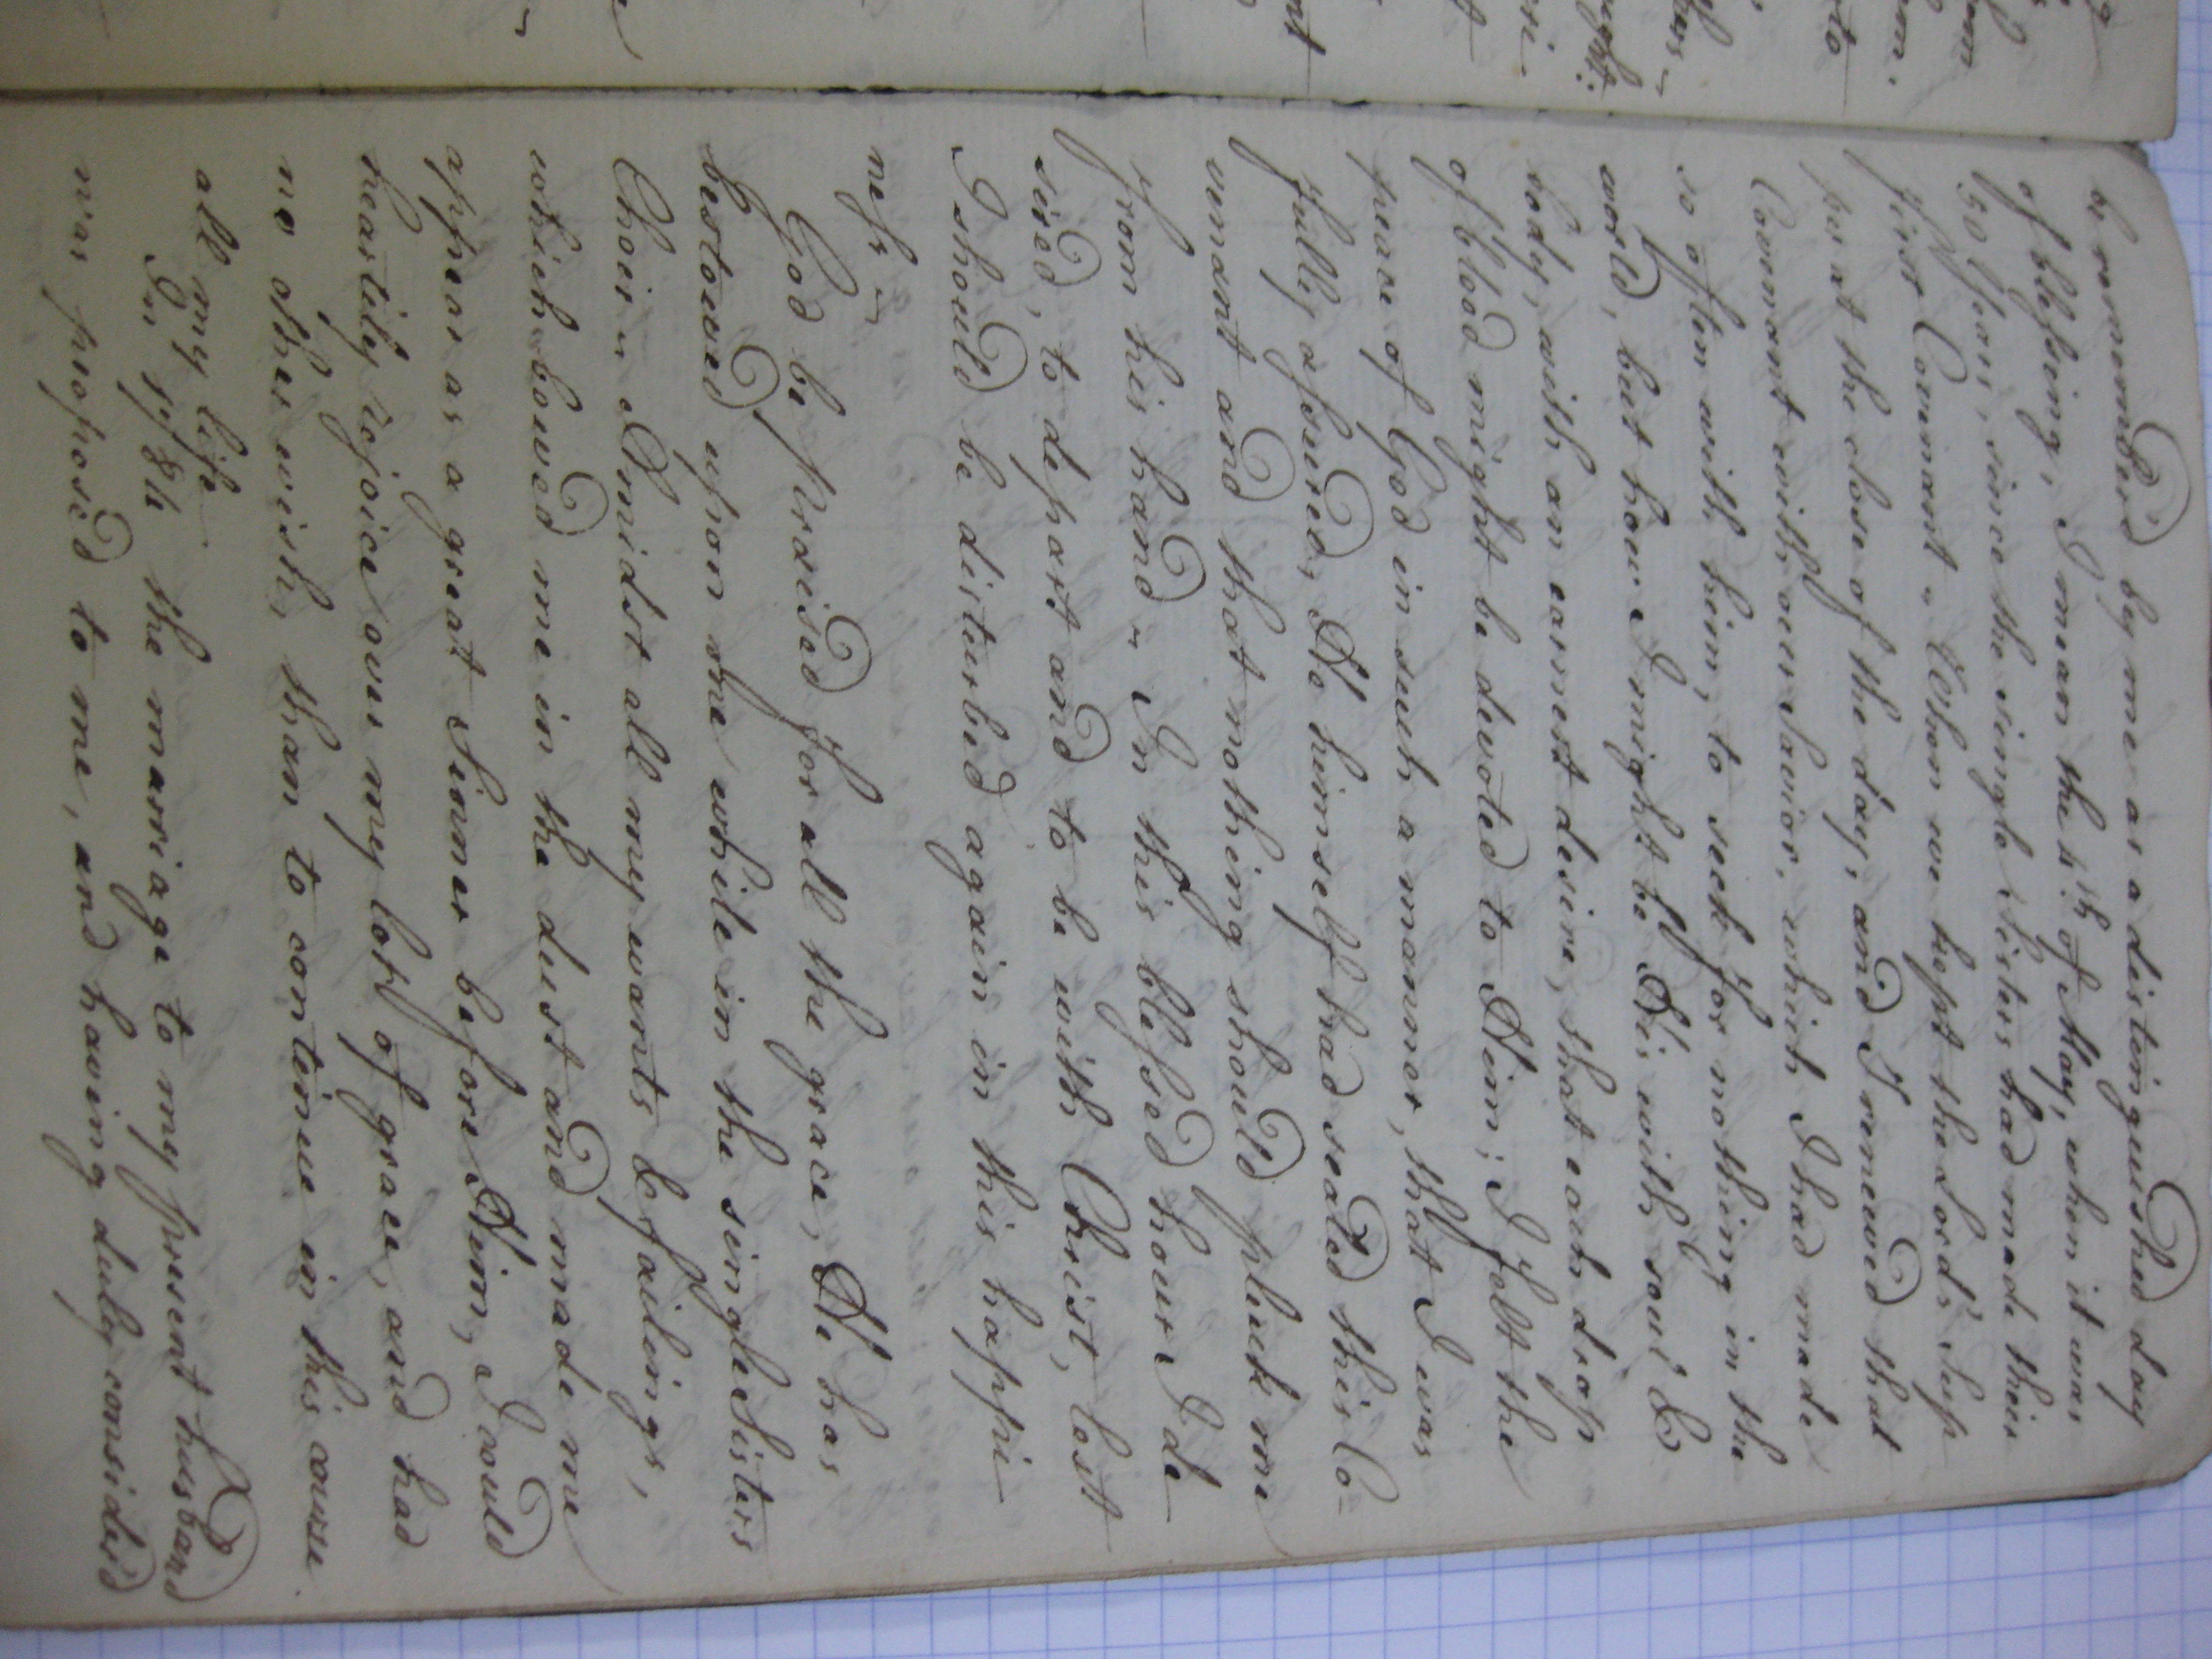 be remember'd by me as a distinguished day
of blessing, I mean the 4th of May, when it was
50 Years, since the single Sisters had made their
first Covenant. When we kept the Lord's Sup
per at the close of the day, and I renewed that
Covenant with our Savior, which I had made
so often with him, to seek for nothing in the
world, but how I might be His with soul &
body, with an earnest desire, that each drop
of blood might be devoted to Him; I felt the
peace of God in such a manner, that I was
fully assured, He himself had sealed this Co-
venant and that nothing should pluck me
from his hand. In this blessed hour I de
sired, to depart and to be with Christ, lest
I should be disturbed again in this happi
ness.
God be praised for all the grace, He has
bestowed upon me while in the single Sisters
Choir. Amidst all my wants & failings,
which bowed me in the dust and made me
appear as a great Sinner before Him, I could
heartily rejoice over my lot of grace, and had
no other wish, than to continue in this course
all my life.
In 1784 the marriage to my present husband
was proposed to me, and having duly consider'd